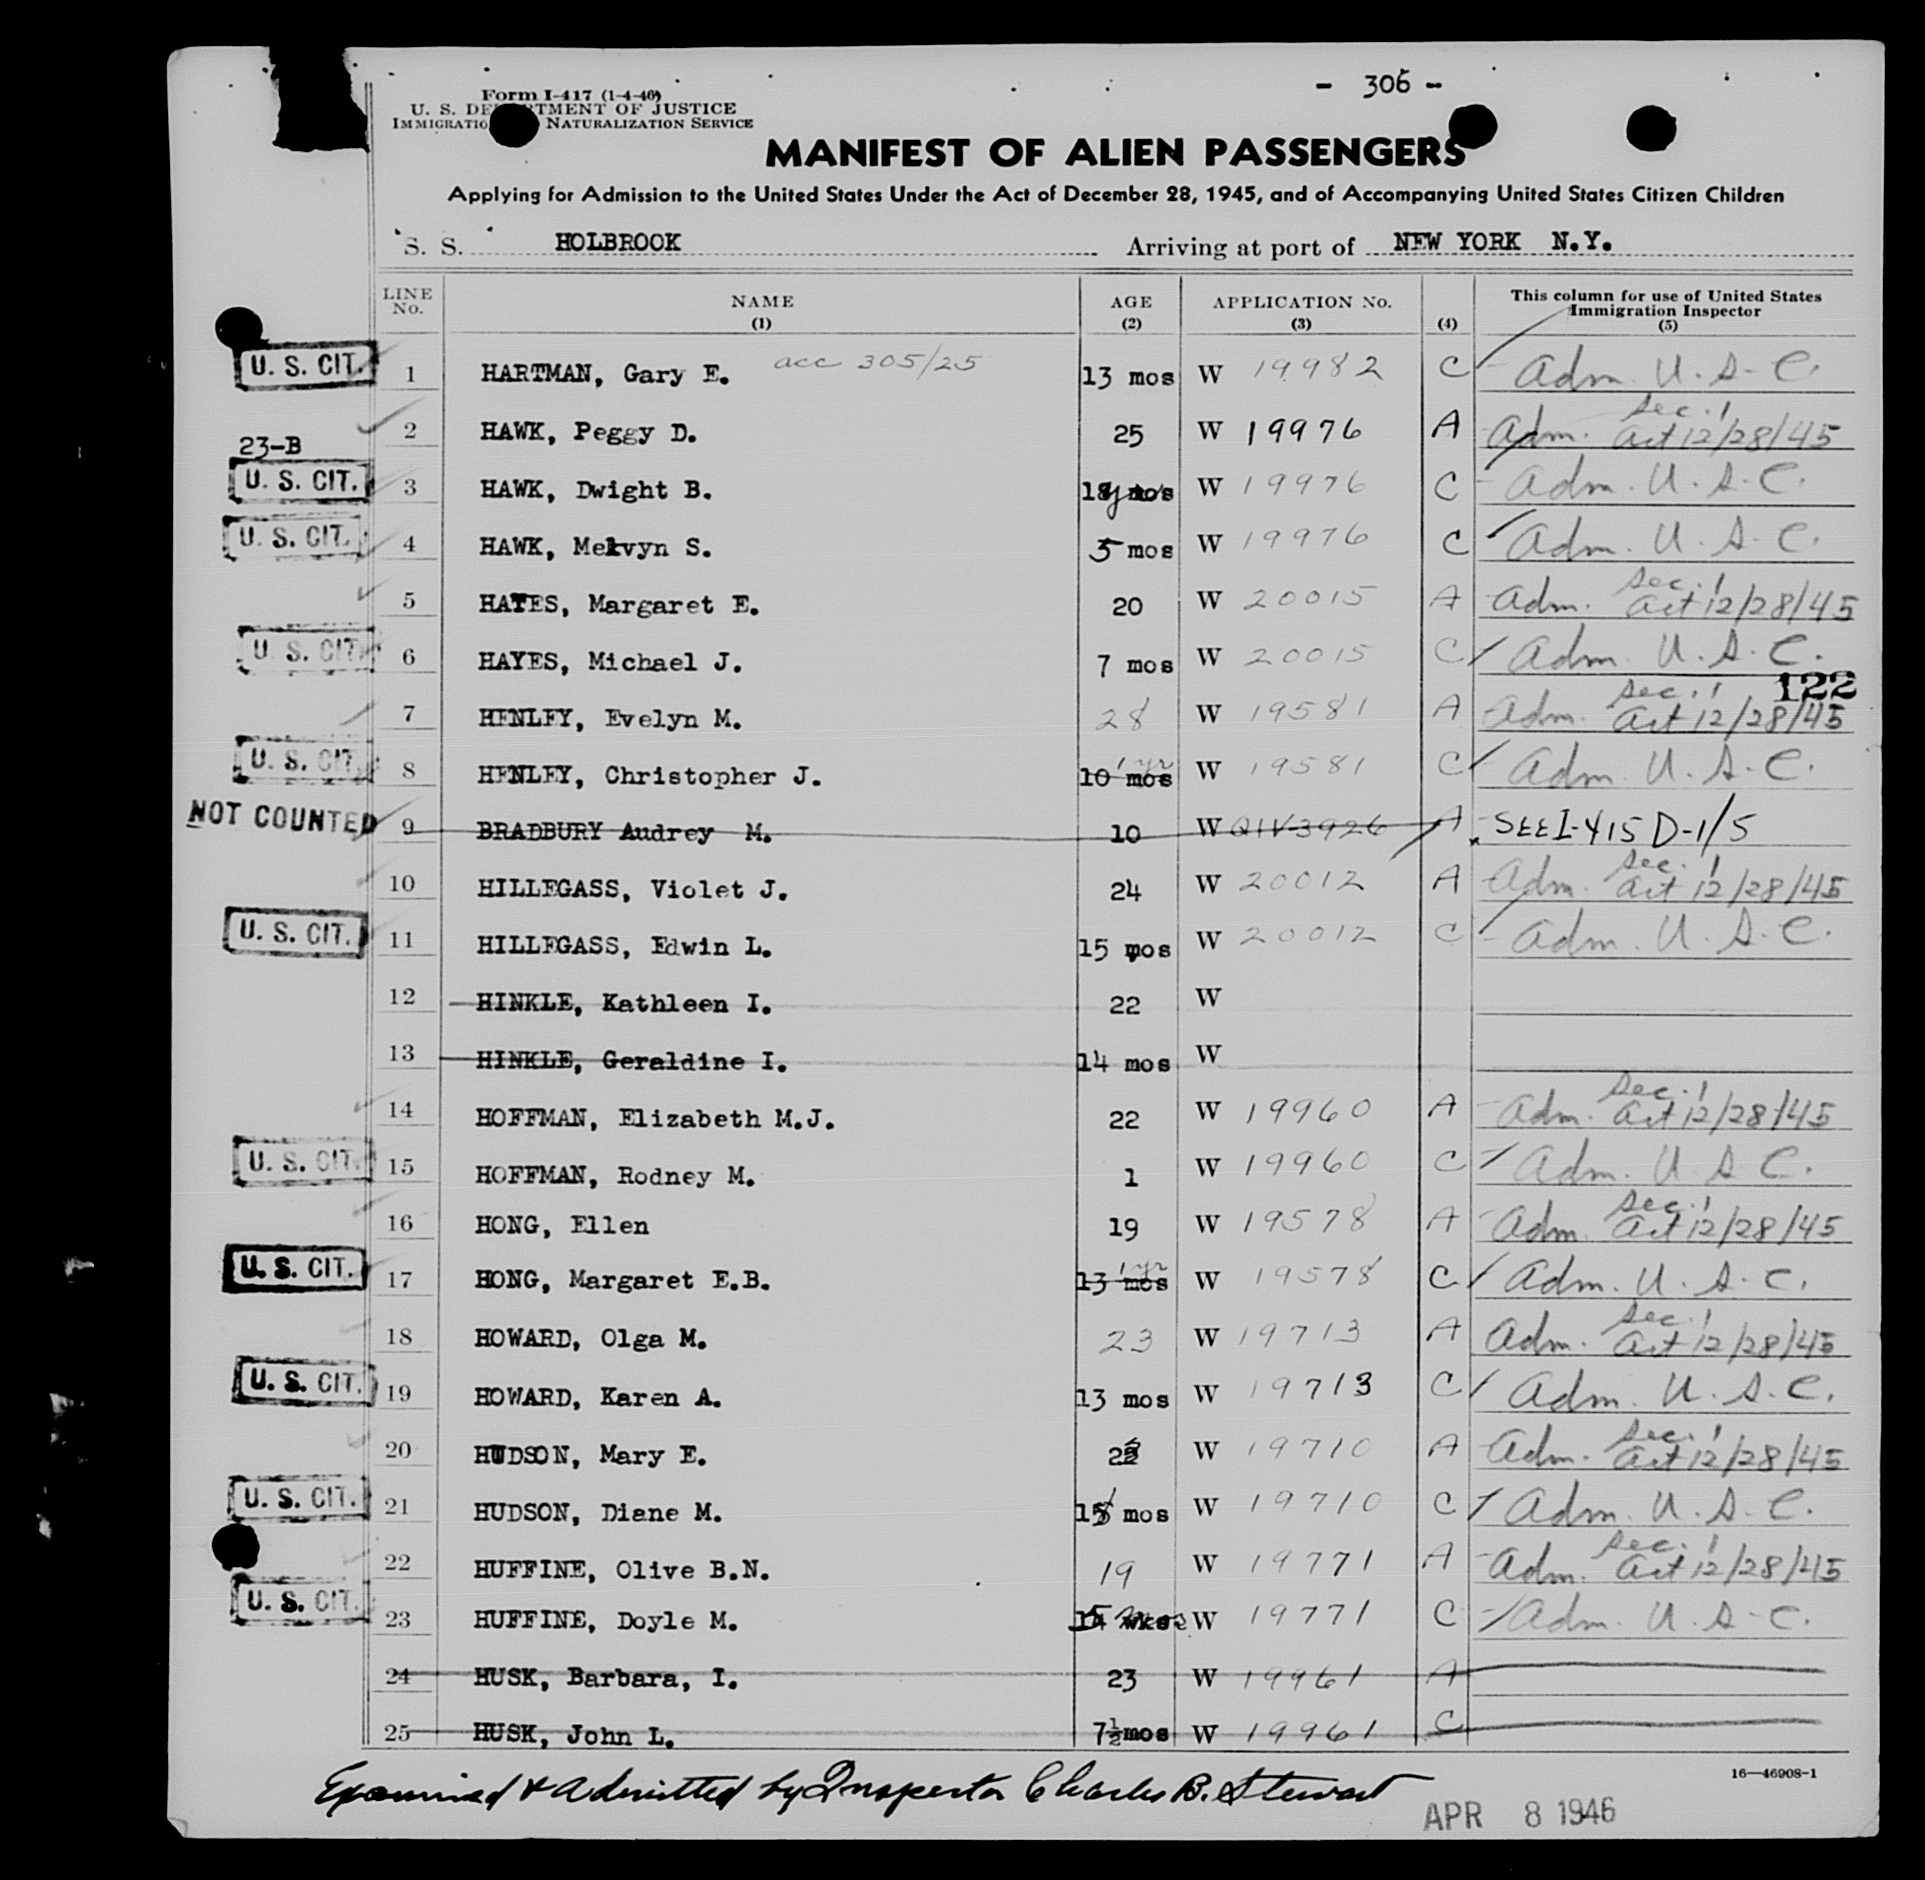 - 306 -
Form I-417 (1-4-46)
U. S. DEPARTMENT OF JUSTICE
IMMIGRATION NATURALIZATION SERVICE
MANIFEST OF ALIEN PASSENGERS
Applying for Admission to the United States Under the Act of December 28, 1945, and of Accompanying United States Citizen Children
S. S. HOLBROOK Arriving at port of NEW YORK N.Y.
LINE No. NAME (1) AGE (2) APPLICATION No. (3) (4) This column for use of United States Immigration Inspector (5)
U. S. CIT. 1 HARTMAN, Gary E. acc 305/25 13 mos W 19982 C Adm. U. S. C.
2 HAWK, Peggy D. 25 W 19976 A Adm. Sec. 1 Act 12/28/45
23-B
U. S. CIT. 3 HAWK, Dwight B. W 19976 C Adm. U. S. C.
U. S. CIT. 4 HAWK, Melvyn S. 5 mos W 19976 C Adm. U. S. C.
5 HAYES, Margaret E. 20 W 20015 A Adm. Sec. 1 Act 12/28/45
U. S. CIT. 6 HAYES, Michael J. 7 mos W 20015 C Adm. U. S. C.
122
7 HENLEY, Evelyn M. 28 W 19581 A Adm. Sec. 1 Act 12/28/45
U. S. CIT. 8 HENLEY, Christopher J. 10 mos 1 yr W 19581 C Adm. U. S. C.
NOT COUNTED 9 BRADBURY Audrey M. 10 W QIV-3926 A SEE I-415 D-1/5
10 HILLEGASS, Violet J. 24 W 20012 A Adm. Sec. 1 Act 12/28/45
U. S. CIT. 11 HILLEGASS, Edwin L. 15 mos W 20012 C Adm. U. S. C.
12 HINKLE, Kathleen I. 22 W
13 HINKLE, Geraldine I. 14 mos W
14 HOFFMAN, Elizabeth M.J. 22 W 19960 A Adm. Sec. 1 Act 12/28/45
U. S. CIT. 15 HOFFMAN, Rodney M. 1 W 19960 C Adm. U. S. C.
16 HONG, Ellen 19 W 19578 A Adm. Sec. 1 Act 12/28/45
U. S. CIT. 17 HONG, Margaret E.B. 13 mos 1 yr W 19578 C Adm. U. S. C.
18 HOWARD, Olga M. 23 W 19713 A Adm. Sec. 1 Act 12/28/45
U. S. CIT. 19 HOWARD, Karen A. 13 mos W 19713 C Adm. U. S. C.
20 HUDSON, Mary E. W 19710 A Adm. Sec. 1 Act 12/28/45
U. S. CIT. 21 HUDSON, Diane M. mos W 19710 C Adm. U. S. C.
22 HUFFINE, Olive B.N. 19 W 19771 A Adm. Sec. 1 Act 12/28/45
U. S. CIT. 23 HUFFINE, Doyle M. W 19771 C Adm. U. S. C.
24 HUSK, Barbara, I. 23 W 19961 A
25 HUSK, John L. 7½ mos W 19961 C
16—46908-1
Examined & Admitted by Inspector Charles B. Stewart
APR 8 1946